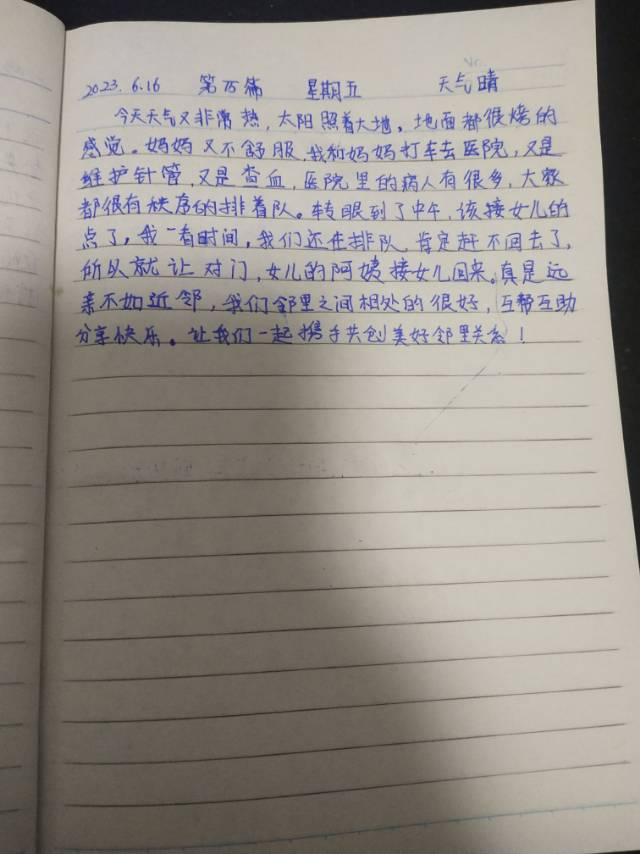 2023.6.16 第75篇 星期五 天气晴
今天天气又非常热，太阳照着大地，地面都很烤的
感觉。妈妈又不舒服，我和妈妈打车去医院，又是
维护针管，又是查血，医院里的病人有很多，大家
都很有秩序的排着队。转眼到了中午，该接女儿的
点了，我一看时间，我们还在排队，肯定赶不回去了，
所以就让对门，女儿的阿姨接女儿回来。真是远
亲不如近邻，我们邻里之间相处的很好，互帮互助
分享快乐。让我们一起携手共创美好邻里关系！